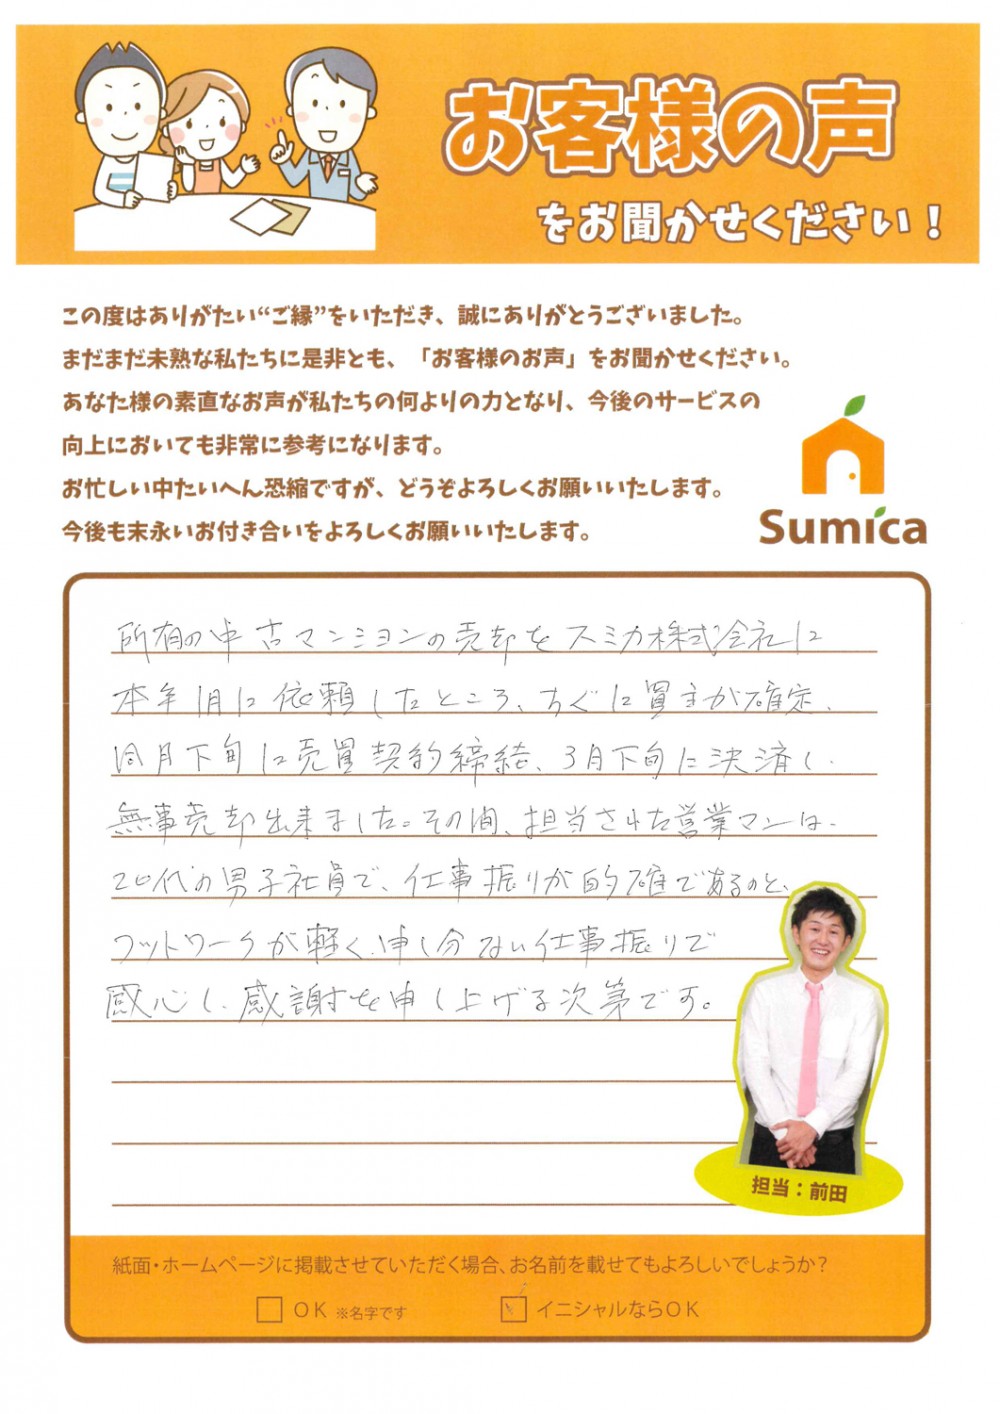 お客様の声
をお聞かせください！
この度はありがたい“ご縁”をいただき、誠にありがとうございました。
まだまだ未熟な私たちに是非とも、「お客様のお声」をお聞かせください。
あなた様の素直なお声が私たちの何よりの力となり、今後のサービスの
向上においても非常に参考になります。
お忙しい中たいへん恐縮ですが、どうぞよろしくお願いいたします。
今後も末永いお付き合いをよろしくお願いいたします。
Sumica
所有の中古マンションの売却をスミカ株式会社に
本年1月に依頼したところ、すぐに買主が確定、
同月下旬に売買契約締結、3月下旬に決済し、
無事売却出来ました。その間、担当された営業マンは、
20代の男子社員で、仕事振りが的確であるのと、
フットワークが軽く、申し分ない仕事振りで
感心し、感謝を申し上げる次第です。
担当：前田
紙面・ホームページに掲載させていただく場合、お名前を載せてもよろしいでしょうか？
OK ※名字です
イニシャルならOK